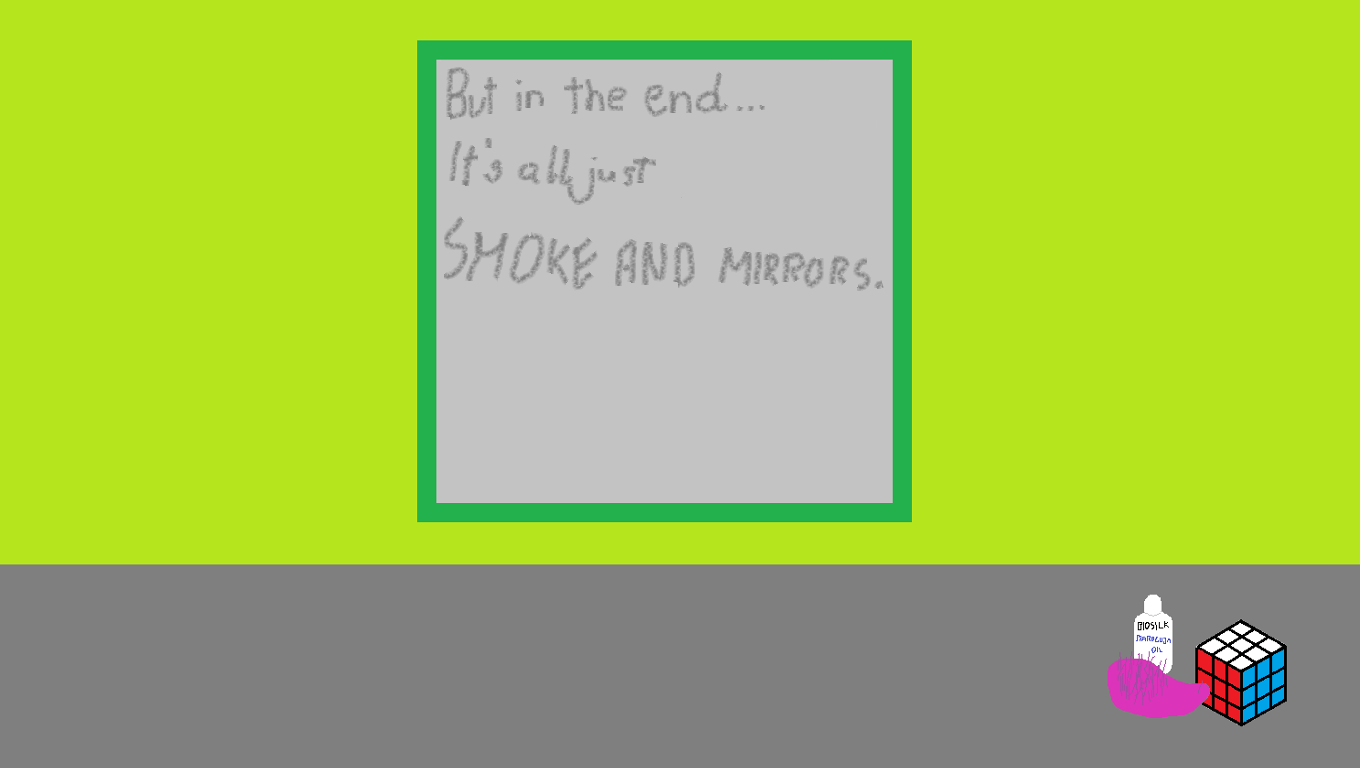 But in the end...
It's all just
SMOKE AND MIRRORS.
BIOSILK
MARACUJA
OIL